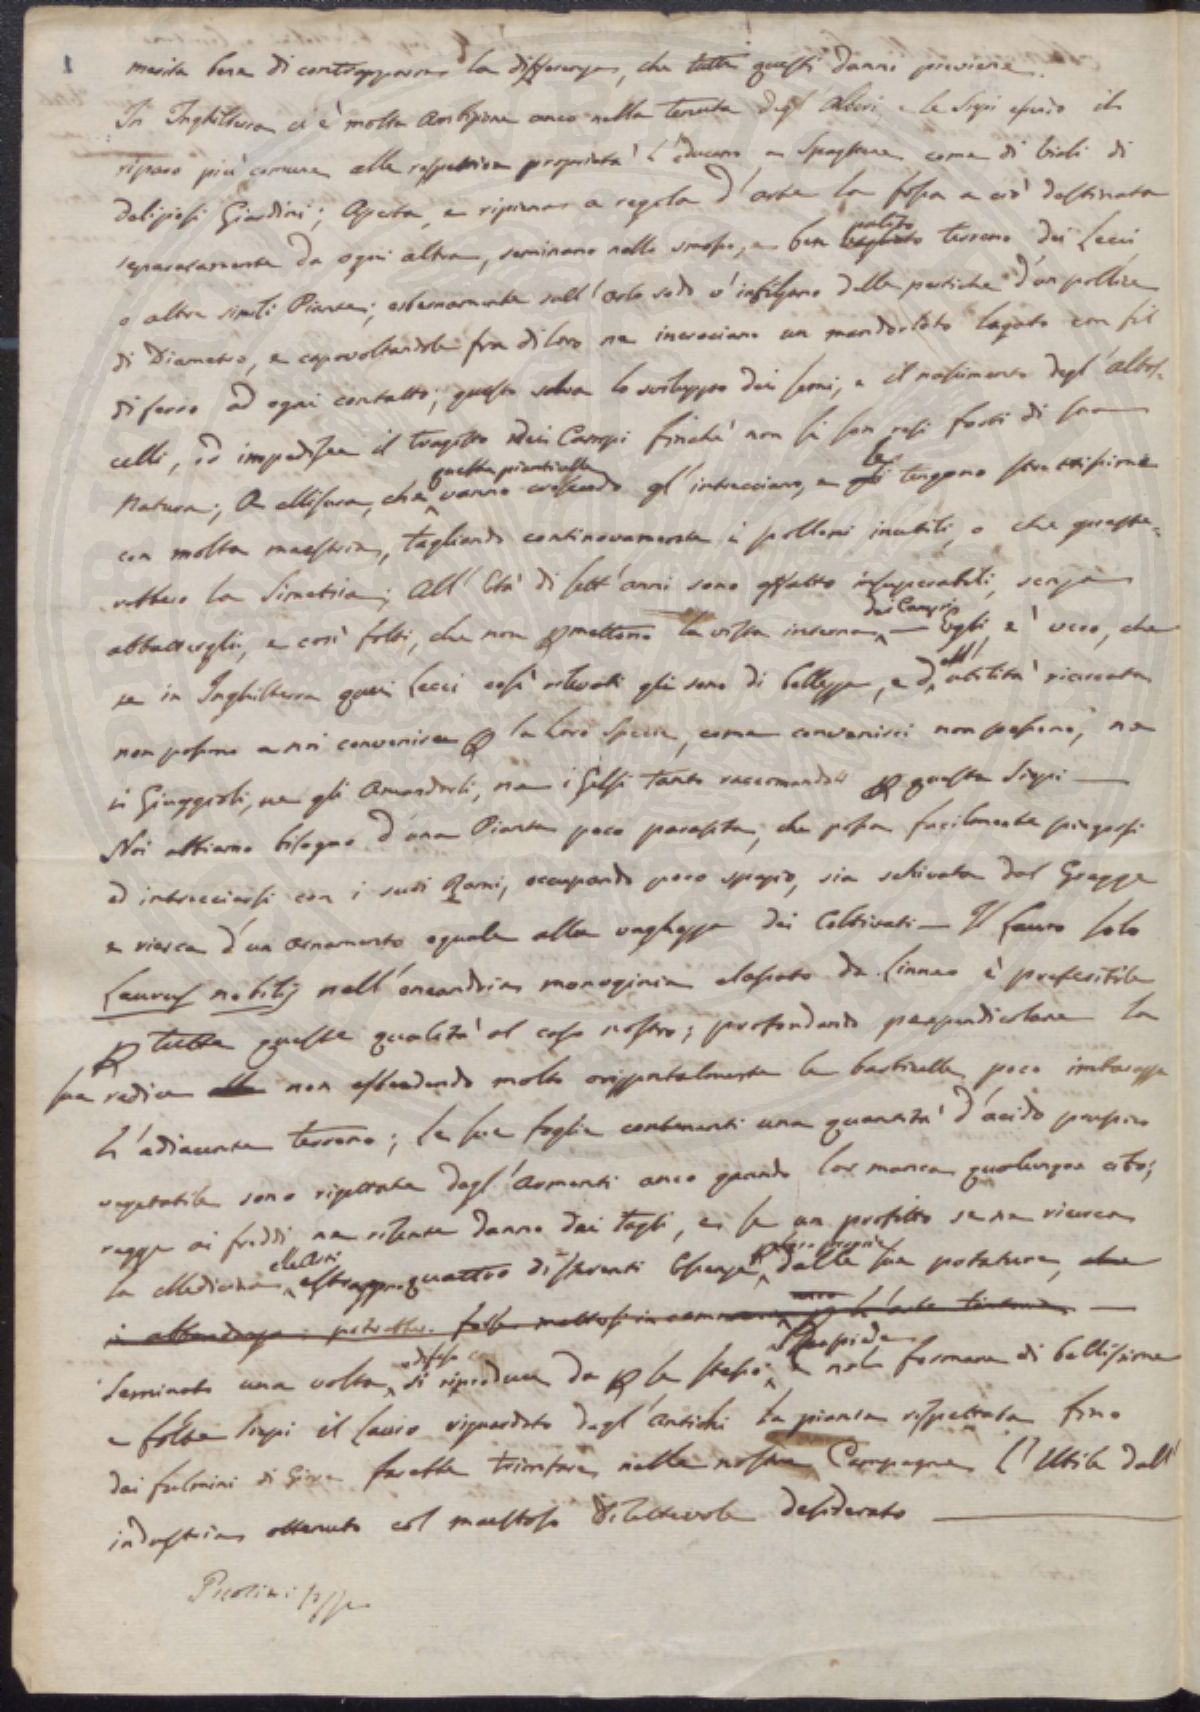 merita bene di contrapporne la differenza, che tutti questi danni previene.
In Inghilterra v'è molta anco nella tenuta degl'Alberi e le Siepi essendo il
riparo più comune alle rispettive proprietà l'educano a Spagliere come di Viali di
deliziosi Giardini; Aperta, e ripiena a regola d'arte la fossa a ciò destinata
separatamente da ogni altra, seminano nello smosso, e ben pulito terreno dei Lecci
o altre simili Piante; esternamente sull'orlo sodo v'infilzano delle pertiche d'un pollice
di Diametro, e capovoltandole fra di loro ne incrociano un mandorlato legato con fil
di ferro ad ogni contatto; questo salva lo sviluppo dei semi, e il nascimento degl'albos-
celli, ed impedisce il tragitto dei Campi finchè non si son resi forti di sua
Natura; A misura, che quelle pianticelle vanno crescendo gl'intrecciano, e le tengono strettissime
con molta maestria, tagliando continovamente i polloni inutili, o che guaste-
rebbero la Simetria; All'Età di sett'anni sono affatto insuperabili, senza
abbattergli, e così folti, che non permettono la vista interna dei Campi — Egli è vero, che
se in Inghilterra quei Lecci così allevati gli sono di bellezza, e dell'utilità ricercata
non possono a noi convenire per la loro specie, come convenirci non possono, ne
i Giuggioli, ne gli Amandorli, ne i Gelsi tanto raccomandati per queste Siepi —
Noi abbiamo bisogno d'una Pianta poco parasita, che possa facilmente piegarsi
ed intrecciarsi con i suoi Rami, occupando poco spazio, sia schivata dal Gregge
e riesca d'un ornamento eguale alla vaghezza dei Coltivati — Il Lauro solo
Laurus nobilis nell'eneandria monoginia classato da Linneo è preferibile
per tutte queste qualità al caso nostro; profondando perpendicolare la
sua radice non estendendo molto orizzontalmente le barbicelle, poco imbarazza
L'adiacente terreno; le sue foglie contenenti una quantità d'acido prussico
vegetabile sono rigettate dagl'Armenti anco quando lor manca qualunque cibo;
regge ai freddi ne risente danno dai tagli, e se un profitto se ne ricerca
la Medicina, e le Arti quattro differenti Essenze dalle sue potature,
Seminato una volta, si riproduce da per se stesso, e nel formare di bellissime
e folte Siepi il Lauro riguardato dagl'Antichi la pianta rispettata fino
dai fulmini di Giove farebbe trionfare nelle nostre Campagne l'Utile dall'
industria ottenuto col maestoso Dilettevole desiderato